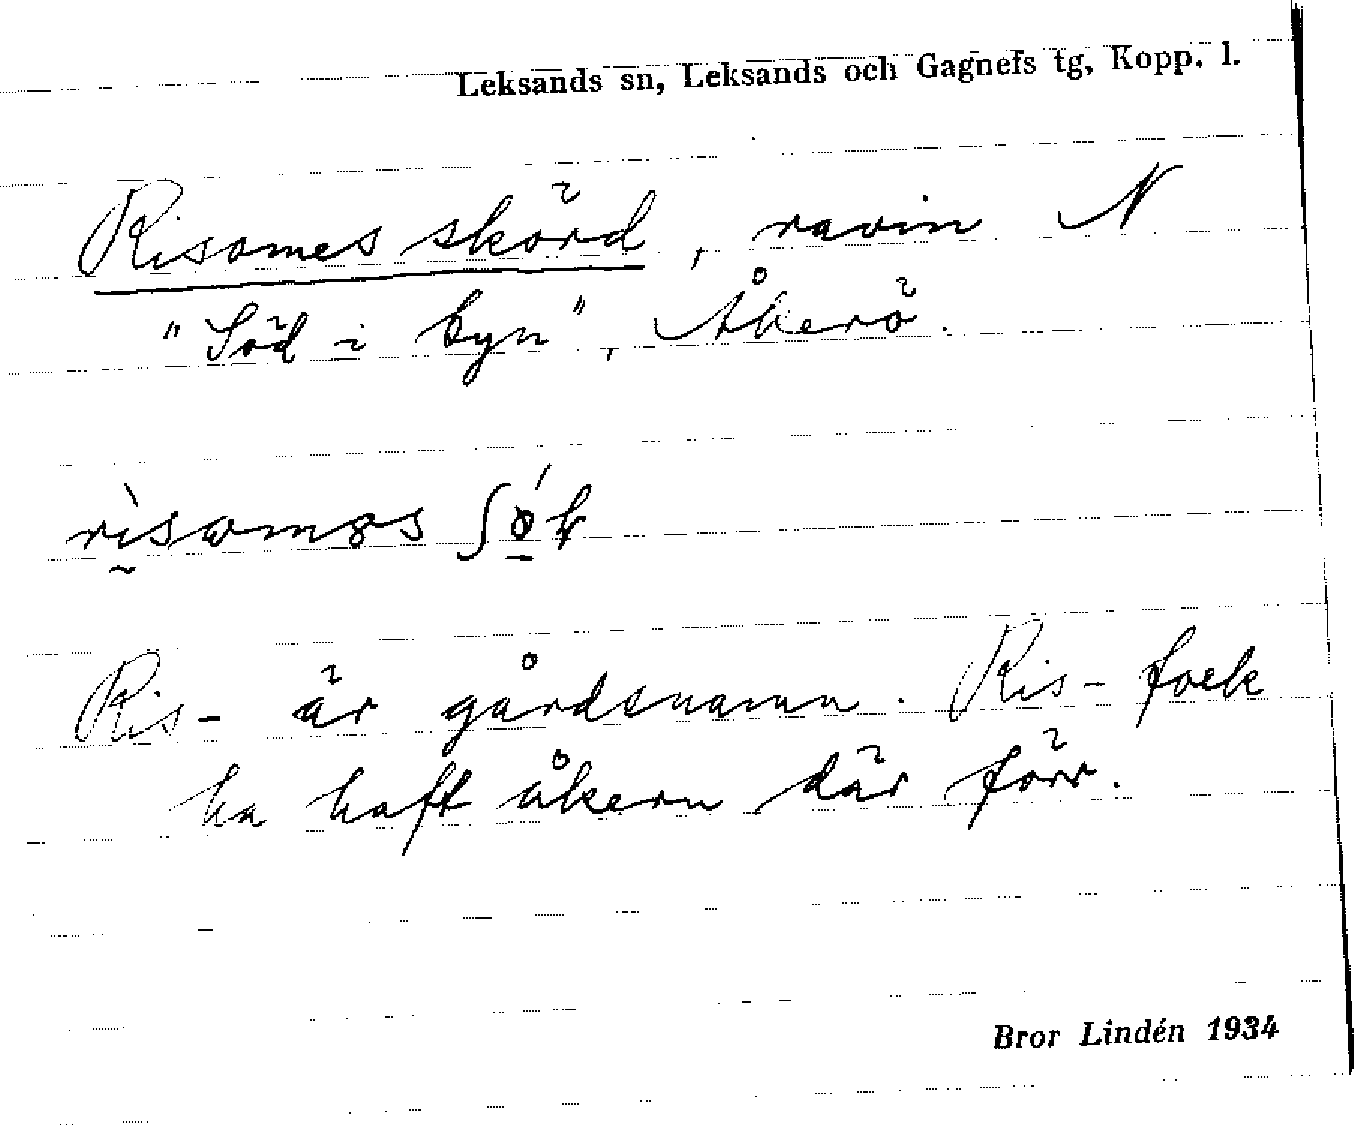 Leksands sn, Leksands och Gagnefs tg, Kopp. l.
Risomes skörd, ravin N
"Söd i byn", Åkerö.
Ris- är gårdsnamn. Ris-folk
ha haft åkern där förr.
Bror Lindén 1934